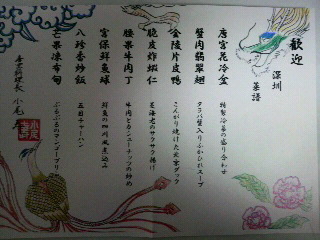 歓迎
深圳
菜譜
唐宮花冷盆
特製冷菜の盛り合わせ
蟹肉翡翠翅
タラバ蟹入りふかひれスープ
金陵片皮鴨
こんがり焼けた北京ダック
脆皮炸蝦仁
芝海老のサクサク揚げ
腰果牛肉丁
牛肉とカシューナッツの炒め
宮保鮮魚球
鮮魚の四川風煮込み
八珍香炒飯
五目チャーハン
芒果凍布甸
ぷるぷるのマンゴープリン
料理長 小尾